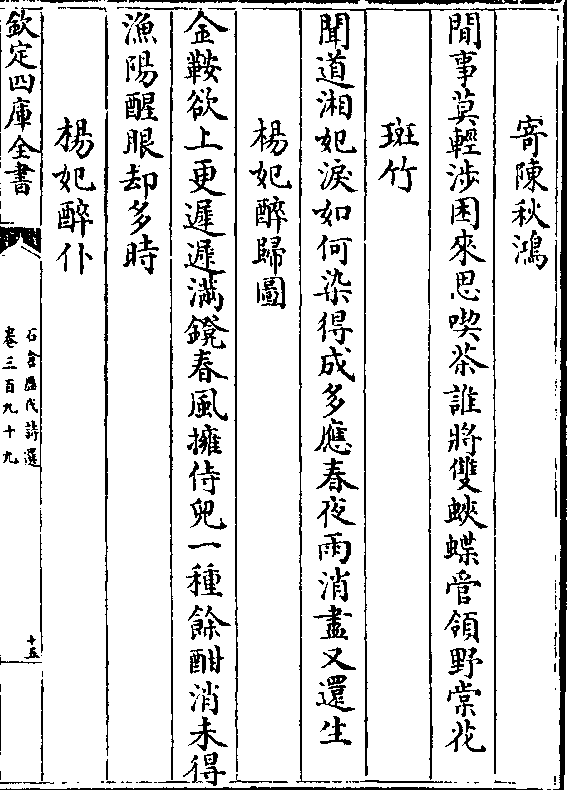 寄陳秋鴻
閒事莫輕涉困來思喫茶誰將雙蛺蝶管領野棠花
斑竹
聞道湘妃淚如何染得成多應春夜雨消盡又還生
楊妃醉歸圖
金鞍欲上更遲遲滿鏡春風擁侍兒一種餘酣消未得
漁陽醒眼却多時
楊妃醉仆
欽定四庫全書
石倉歷代詩選
卷三百九十九
十五